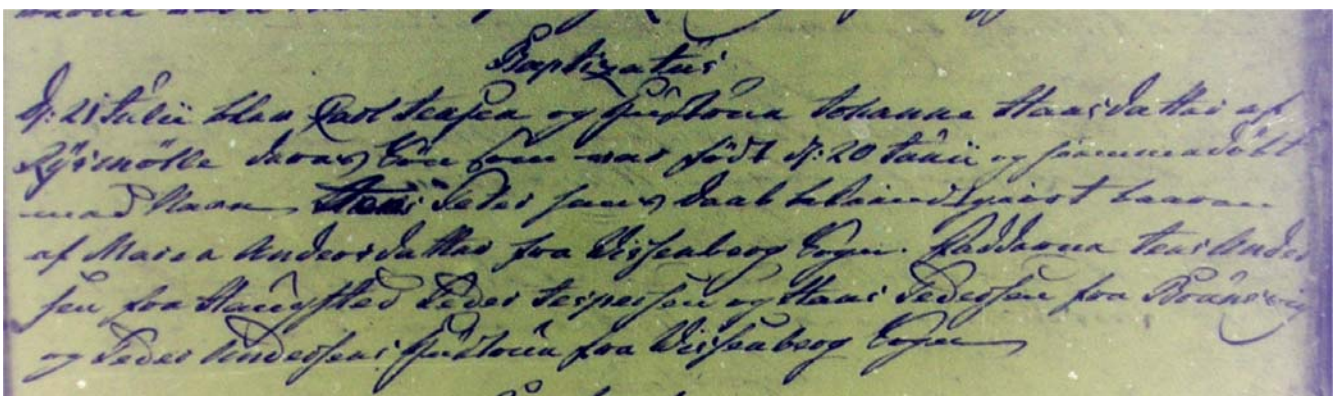 Baptizatus
d: 21 Julii blev Jensen og Hustrue Johanne Hansdatter af
deres Sön som var födt d: 20 Junii og hiemmedöbt
med Navn Peder hans Daab bekiendtgiort baaren
af Maren Andersdatter fra Vissenberg Sogn. Fadderne Jens Ander
sen fra Peder Jespersen og Hans Pedersen fra
og Peder Andersens Hustrue fra Vissenberg Sogn